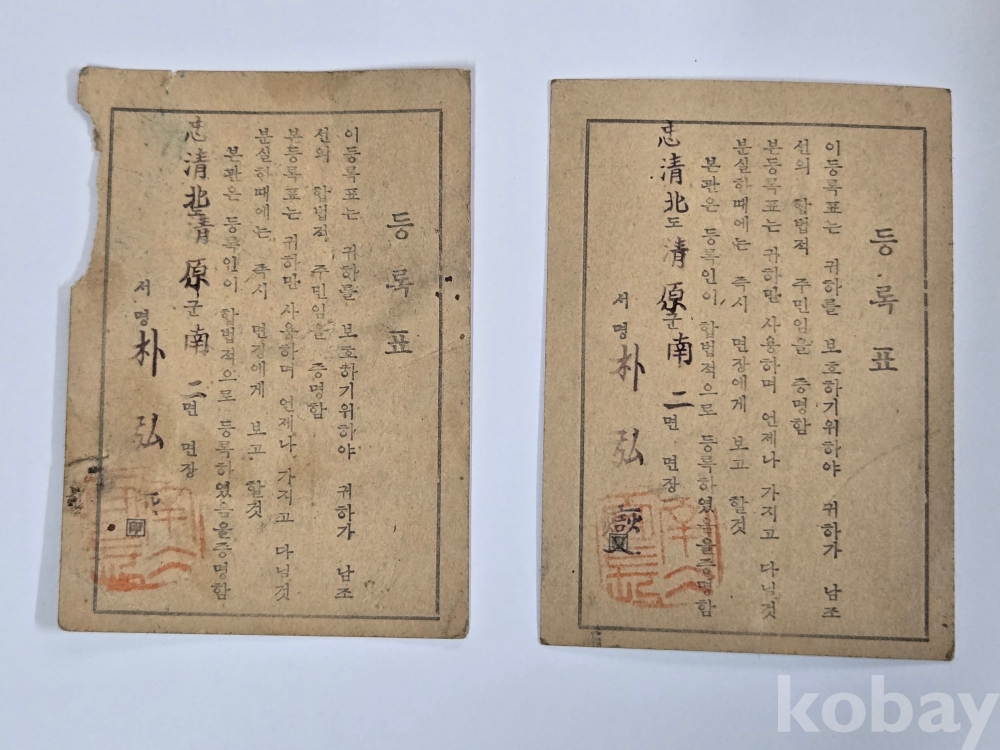 등록표
이등록표는 귀하를 보호하기위하야 귀하가 남조
선의 합법적 주민임을 증명함
본등록표는 귀하만 사용하며 언제나 가지고 다닐것
분실한때에는 즉시 면장에게 보고 할것
본관은 등록인이 합법적으로 등록하였음을증명함
忠清北道清原군南二면 면장
서명 朴弘
등록표
이등록표는 귀하를 보호하기위하야 귀하가 남조
선의 합법적 주민임을 증명함
본등록표는 귀하만 사용하며 언제나 가지고 다닐것
분실하때에는 즉시 면장에게 보고 할것
본관은 등록인이 합법적으로 등록하였음을증명함
忠清北도清原군南二면 면장
서명 朴弘
kobay